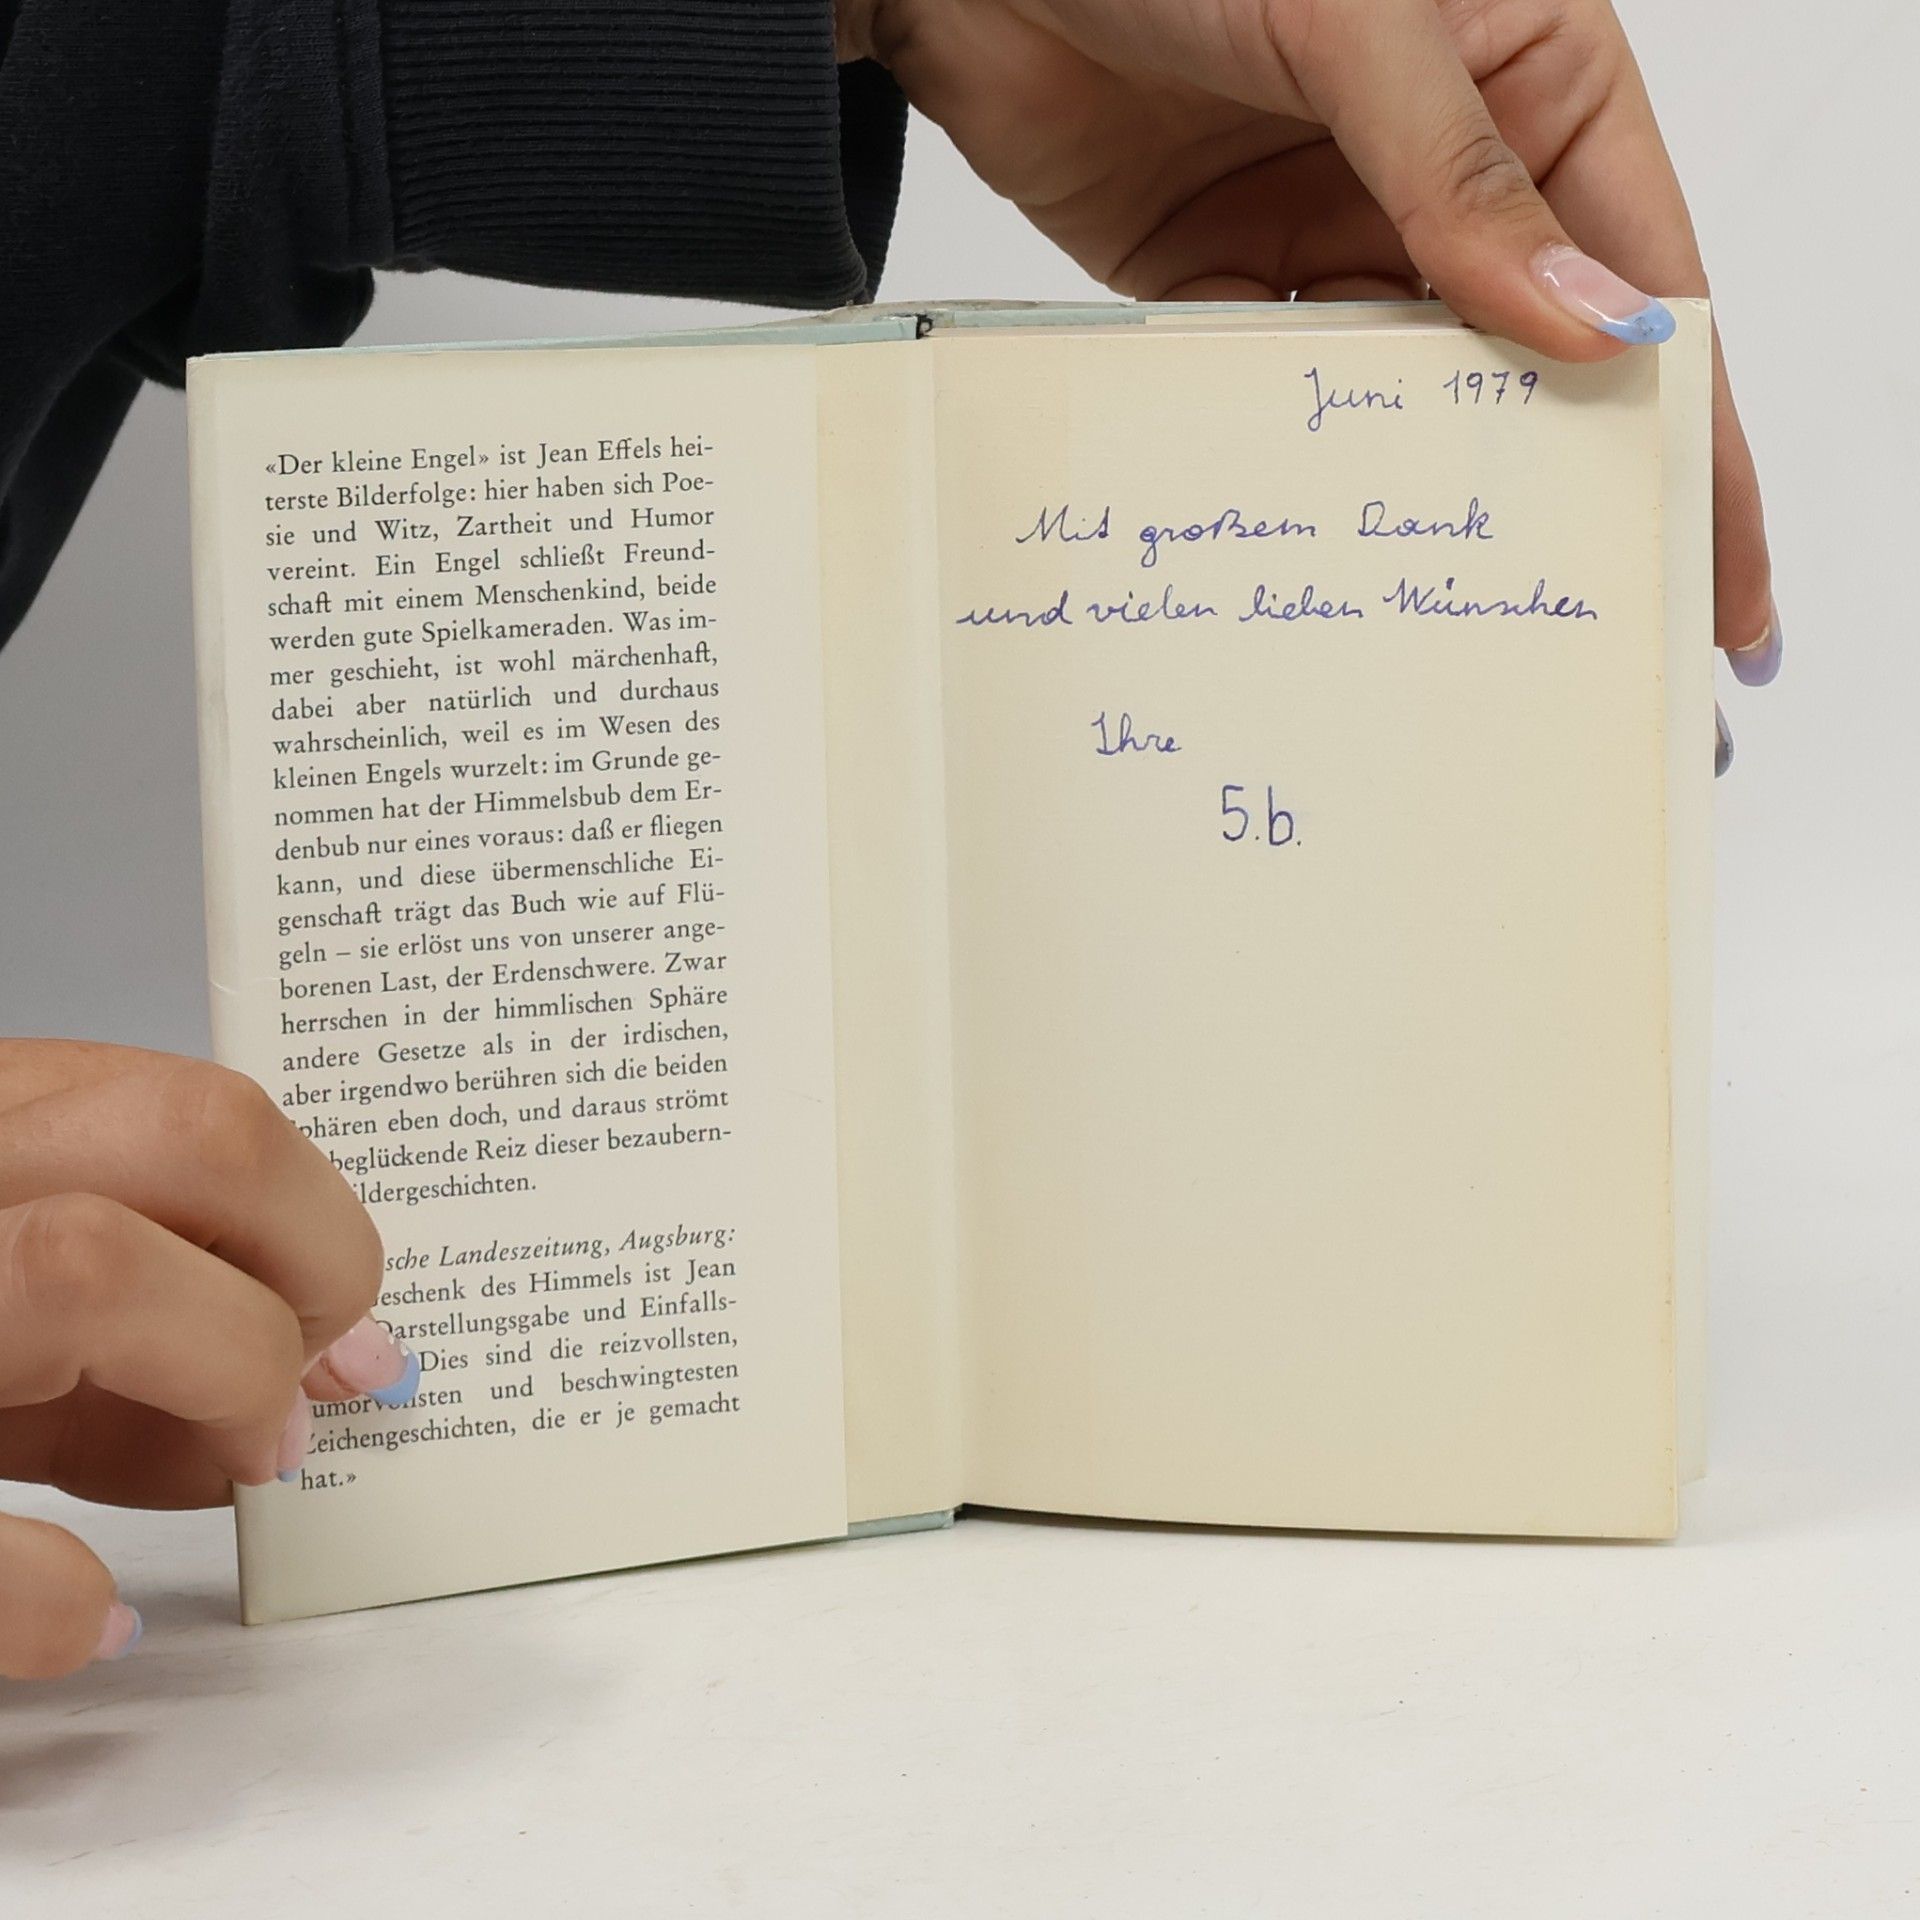 «Der kleine Engel» ist Jean Effels hei-
terste Bilderfolge: hier haben sich Poe-
sie und Witz, Zartheit und Humor
vereint. Ein Engel schließt Freund-
schaft mit einem Menschenkind, beide
werden gute Spielkameraden. Was im-
mer geschieht, ist wohl märchenhaft,
dabei aber natürlich und durchaus
wahrscheinlich, weil es im Wesen des
kleinen Engels wurzelt: im Grunde ge-
nommen hat der Himmelsbub dem Er-
denbub nur eines voraus: daß er fliegen
kann, und diese übermenschliche Ei-
genschaft trägt das Buch wie auf Flü-
geln – sie erlöst uns von unserer ange-
borenen Last, der Erdenschwere. Zwar
herrschen in der himmlischen Sphäre
andere Gesetze als in der irdischen,
aber irgendwo berühren sich die beiden
phären eben doch, und daraus strömt
beglückende Reiz dieser bezaubern-
ildergeschichten.
sche Landeszeitung, Augsburg:
eschenk des Himmels ist Jean
Darstellungsgabe und Einfalls-
Dies sind die reizvollsten,
und beschwingtesten
Zeichengeschichten, die er je gemacht
hat.»
Juni 1979
Mit großem Dank
und vielen lieben Wünschen
Ihre
5.b.